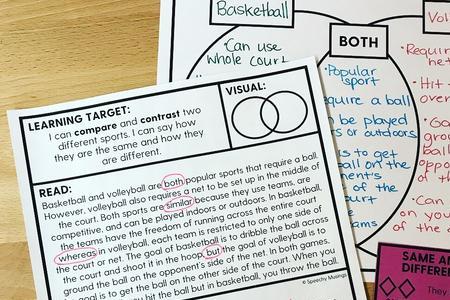 Basketball
Can use
whole court
BOTH
•Popular
sport
require a ball
be played
or outdoors
is to get
ball on the
of the
court
Vol
•Requir
•Hit
over
•Go
grou
ball
oppo
of th
•Can
on yo
of the
SAME AN
DIFFERE
LEARNING TARGET:
I can compare and contrast two
different sports. I can say how
they are the same and how they
are different.
VISUAL:
READ:
Basketball and volleyball are both popular sports that require a ball.
However, volleyball also requires a net to be set up in the middle of
the court. Both sports are similar because they use teams, are
competitive, and can be played indoors or outdoors. In basketball,
the teams have the freedom of running across the entire court
whereas in volleyball, each team is restricted to only one side of
the court or net. The goal of basketball is to dribble the ball across
the court and shoot it in the hoop, but the goal of volleyball is to
ground the ball on the opponent's side of the net. In both games,
goal is to get the ball on the other side of the court. When you
hit the ball but in basketball, you throw the ball.
© Speechy Musings